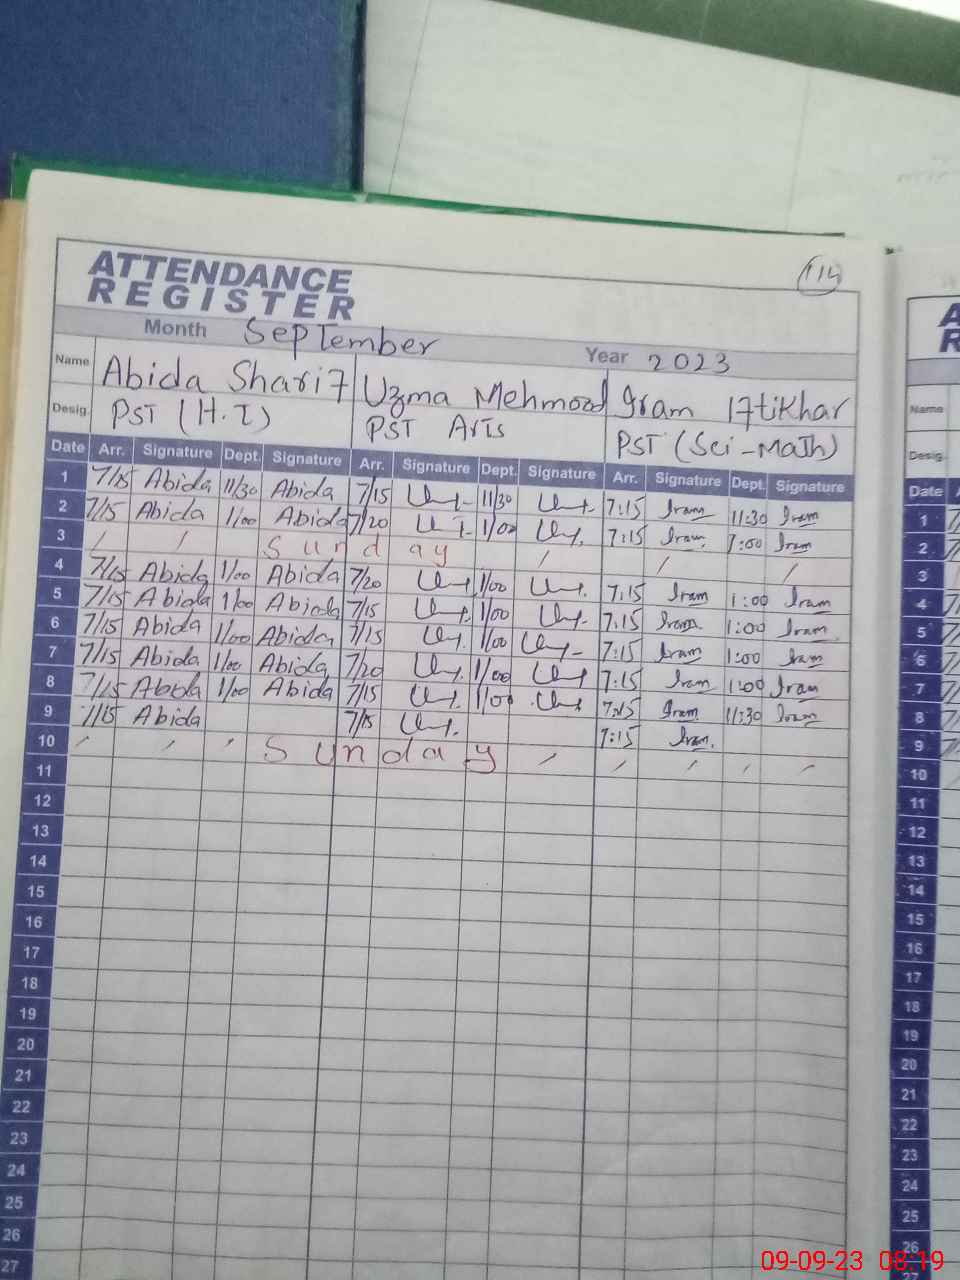 114
ATTENDANCE
REGISTER
Month September Year 2023
Name Abida Sharif Uzma Mehmood Iram Iftikhar
Desig. PST (H.T) PST Arts PST (Sci-Math)
Date Arr. Signature Dept. Signature Arr. Signature Dept. Signature Arr. Signature Dept. Signature
1 7/15 Abida 11/30 Abida 7/15 11/30 7:15 Iram 11:30 Iram
2 7/15 Abida 1/00 Abida 7/20 1/00 7:15 Iram :00 Iram
3 / / Sunday / / /
4 7/15 Abida 1/00 Abida 7/20 1/00 7:15 Iram 1:00 Iram
5 7/15 Abida 1/00 Abida 7/15 1/00 7:15 Iram 1:00 Iram
6 7/15 Abida 1/00 Abida 7/15 1/00 7:15 Iram 1:00 Iram
7 7/15 Abida 1/00 Abida 7/20 1/00 7:15 Iram 1:00 Iram
8 7/15 Abida 1/00 Abida 7/15 1/00 7:15 Iram 11:30 Iram
9 7/15 Abida 7/15 7:15 Iram
10 / / / Sunday / / / / /
11
12
13
14
15
16
17
18
19
20
21
22
23
24
25
26
27
A
R
Name
Desig.
Date
1
2
3
4
5
6
7
8
9
10
11
12
13
14
15
16
17
18
19
20
21
22
23
24
25
26
09-09-23 08:19